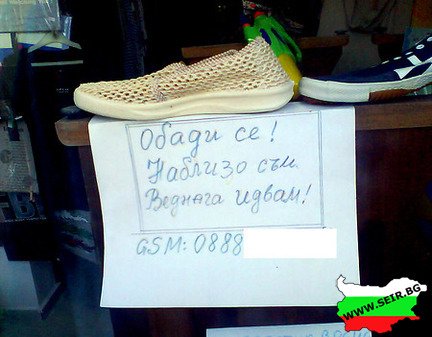 Обади се!
Наблизо съм.
Веднага идвам!
GSM: 0888
WWW.SEIR.BG